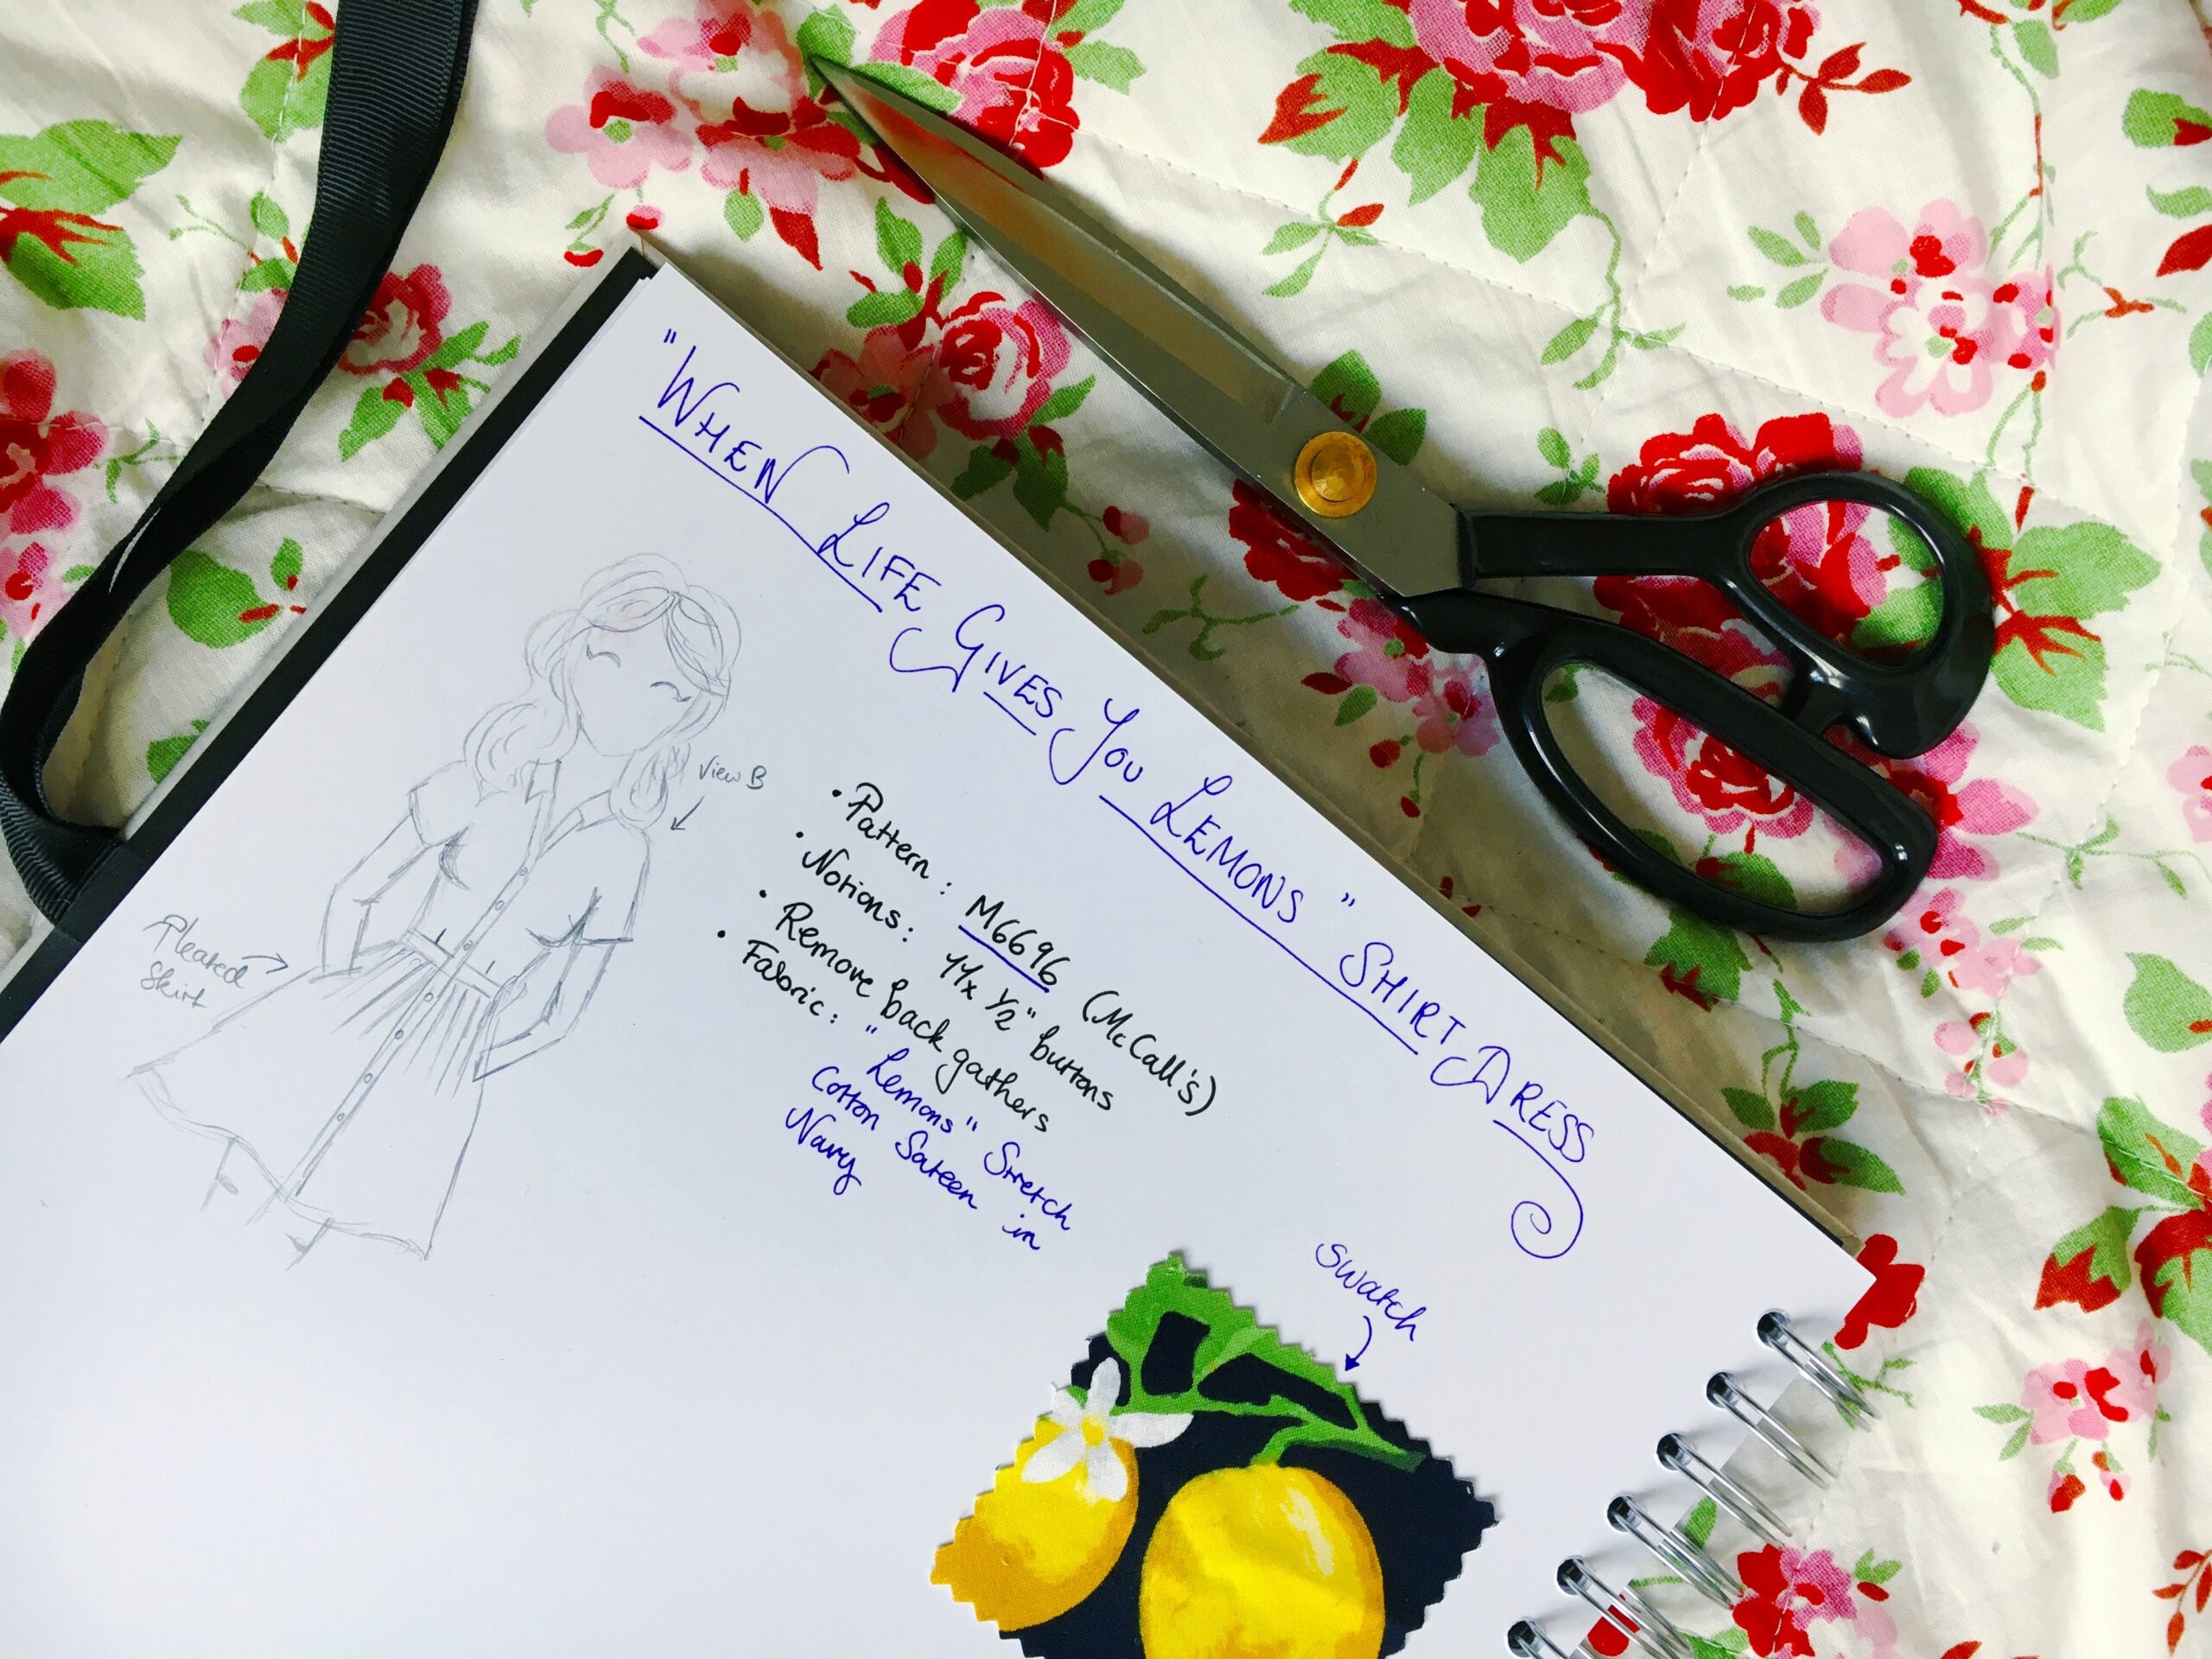 "When Life Gives You Lemons" Shirt Dress
View B
Pleated
Skirt
• Pattern: M6696 (McCall's)
• Notions: 11x 1/2" buttons
• Remove back gathers
• Fabric: "Lemons" Stretch
Cotton Sateen in
Navy
Swatch